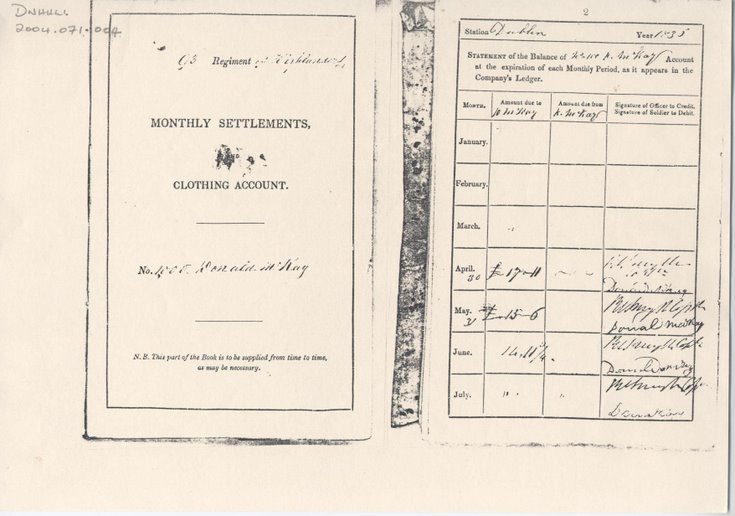 DNHHL:
2004.071.004
93 Regiment of Highlanders
MONTHLY SETTLEMENTS,
AND
CLOTHING ACCOUNT.
No. Donald McKay
N.B. This part of the Book is to be supplied from time to time,
as may be necessary.
2
Station Dublin Year 1835
STATEMENT of the Balance of McKay Account
at the expiration of each Monthly Period, as it appears in the
Company's Ledger.
MONTH. Amount due to Amount due from Signature of Officer to Credit.
McKay McKay Signature of Soldier to Debit.
January.
February.
March. "
April. £ 17-11
30
May. £ 15-6
31 Donal McKay
June. 14.11¾
July. " "